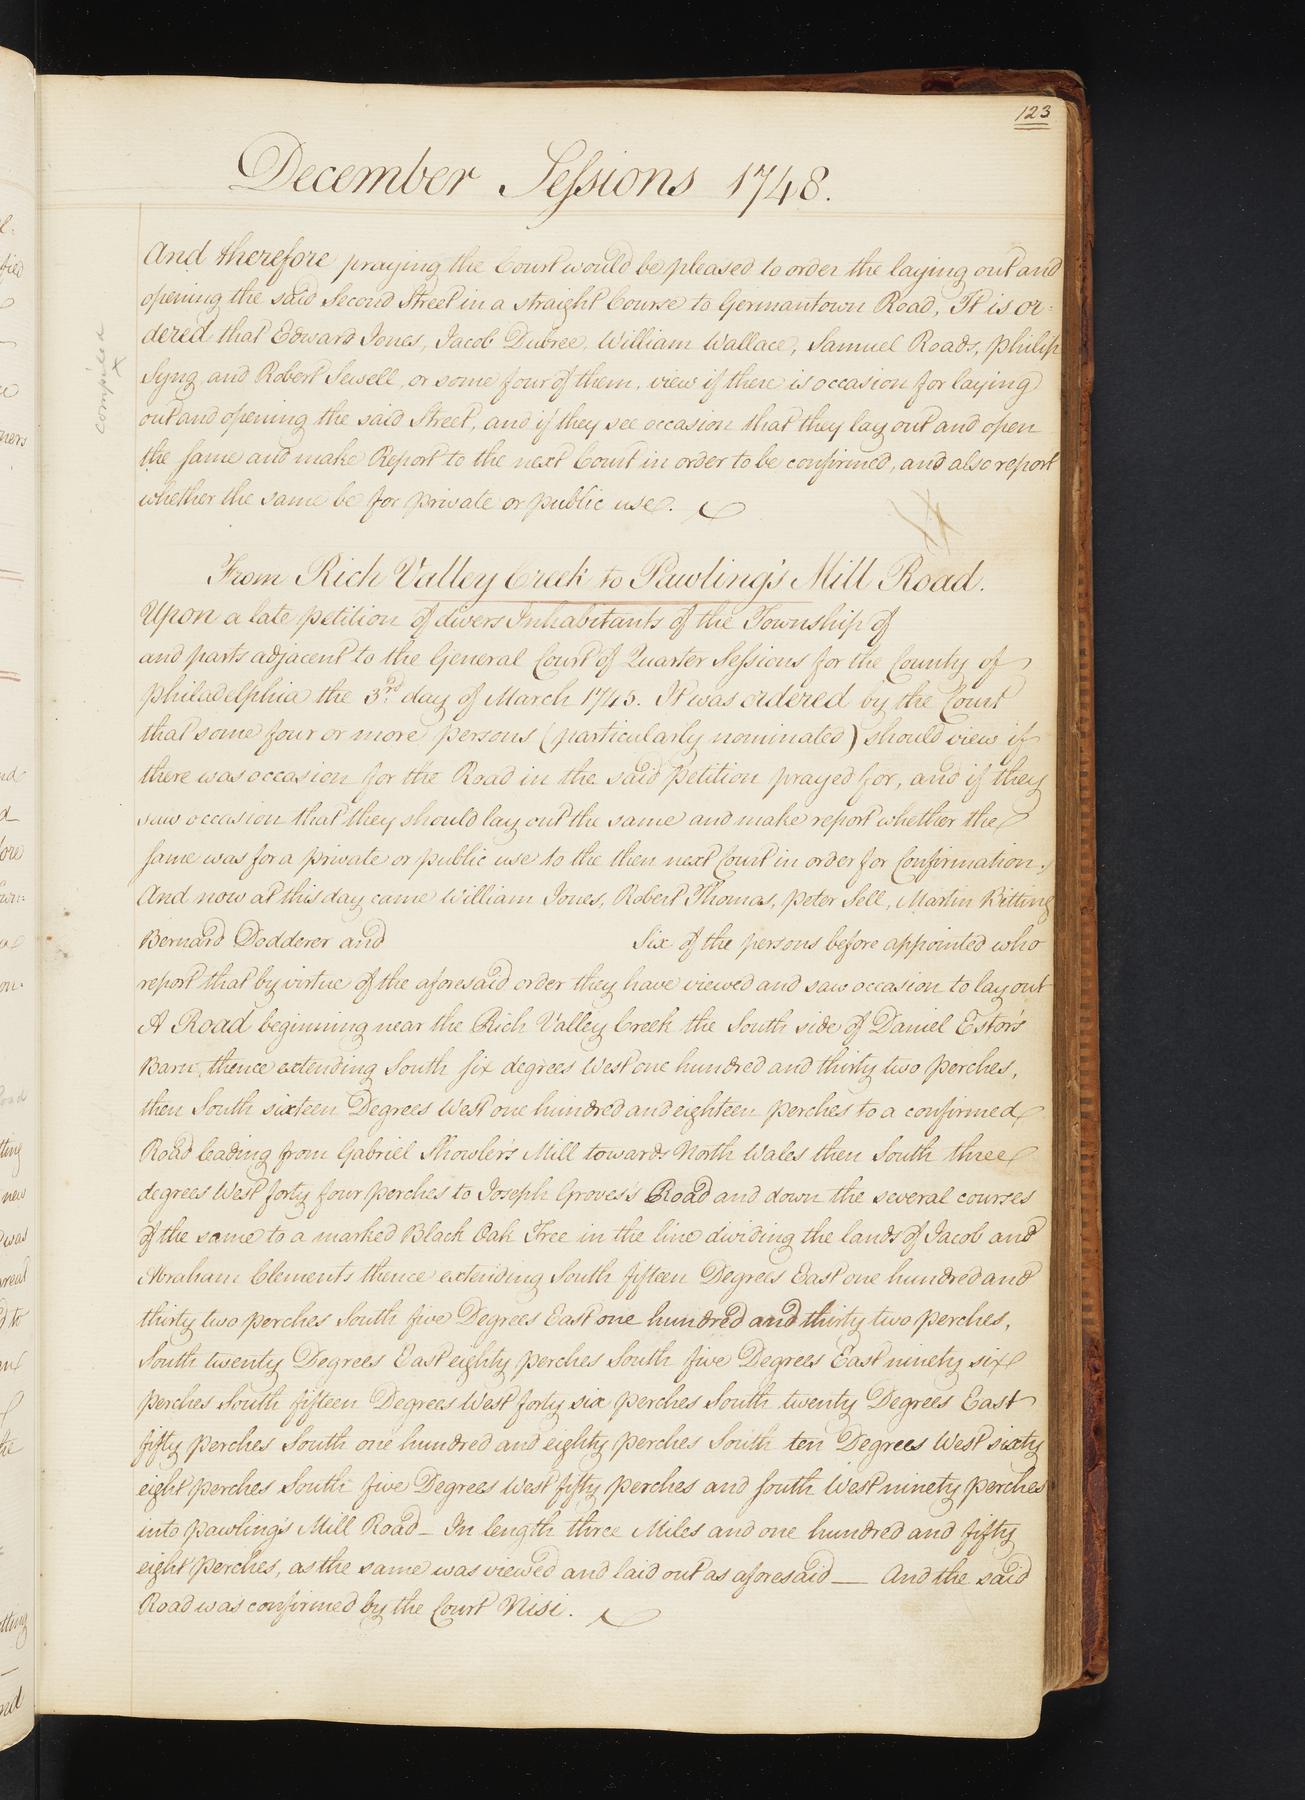 123
December Sessions 1748.
And therefore praying the Court would be pleased to order the laying out and
opening the said Second Street in a straight Course to Germantown Road, It is or-
dered that Edward Jones, Jacob Dubree, William Wallace, Samuel Roads, Philip
Syng and Robert Sewell, or some four of them, view if there is occasion for laying
out and opening the said Street, and if they see occasion that they lay out and open
the same and make Report to the next Court in order to be confirmed, and also report
whether the same be for private or public use.
From Rich Valley Creek to Pawling's Mill Road.
Upon a late petition of divers Inhabitants of the Township of
and parts adjacent to the General Court of Quarter Sessions for the County of
Philadelphia the 3rd day of March 1745. It was ordered by the Court
that some four or more persons (particularly nominated) should view if
there was occasion for the Road in the said Petition prayed for, and if they
saw occasion that they should lay out the same and make report whether the
same was for a private or public use to the then next Court in order for Confirmation.
And now at this day came William Jones, Robert Thomas, Peter Sell, Martin Bitting
Bernard Dodderer and Six of the persons before appointed who
report that by virtue of the aforesaid order they have viewed and saw occasion to lay out
A Road beginning near the Rich Valley Creek the South side of Daniel Estor's
Barn, thence extending South six degrees West one hundred and thirty two perches,
then South sixteen Degrees West one hundred and eighteen perches to a confirmed
Road leading from Gabriel Showler's Mill towards North Wales then South three
degrees West forty four perches to Joseph Groves's Road and down the several courses
of the same to a marked Black Oak Tree in the line dividing the lands of Jacob and
Abraham Clements thence extending South fifteen Degrees East one hundred and
thirty two perches South five Degrees East one hundred and thirty two perches,
South twenty Degrees East eighty perches South five Degrees East ninety six
perches South fifteen Degrees West forty six perches South twenty Degrees East
fifty perches South one hundred and eighty perches South ten Degrees West sixty
eight perches South five Degrees West fifty perches and South West ninety perches
into Pawling's Mill Road – In length three Miles and one hundred and fifty
eight perches, as the same was viewed and laid out as aforesaid — And the said
Road was confirmed by the Court Nisi.